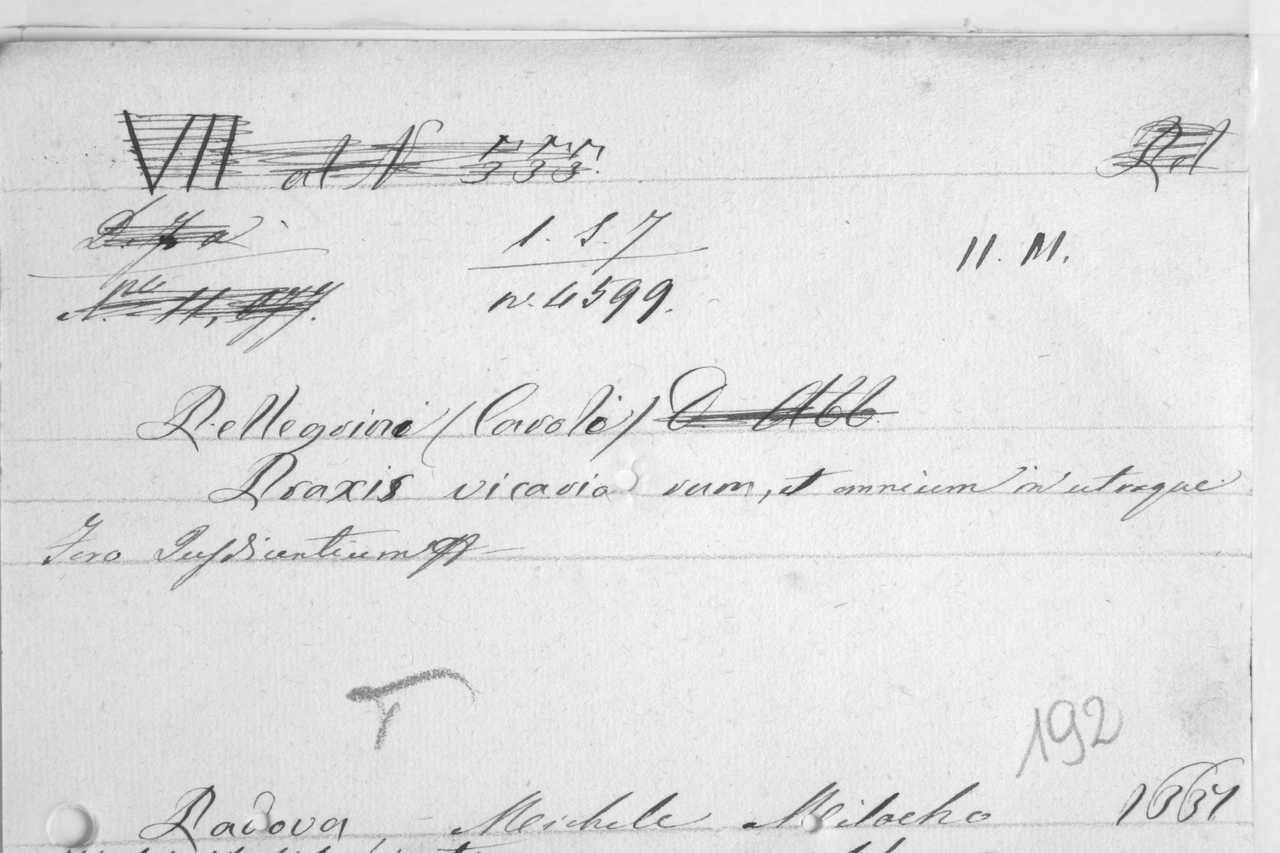 VII al N 333 Rel
1. S. 7 11. M.
n. 4599.
Pellegrini (Carolo) D Abb
Praxis vicaria rum, et omnium in utroque
Foro Jusdicentium
T
192
Padova Michele Milocho